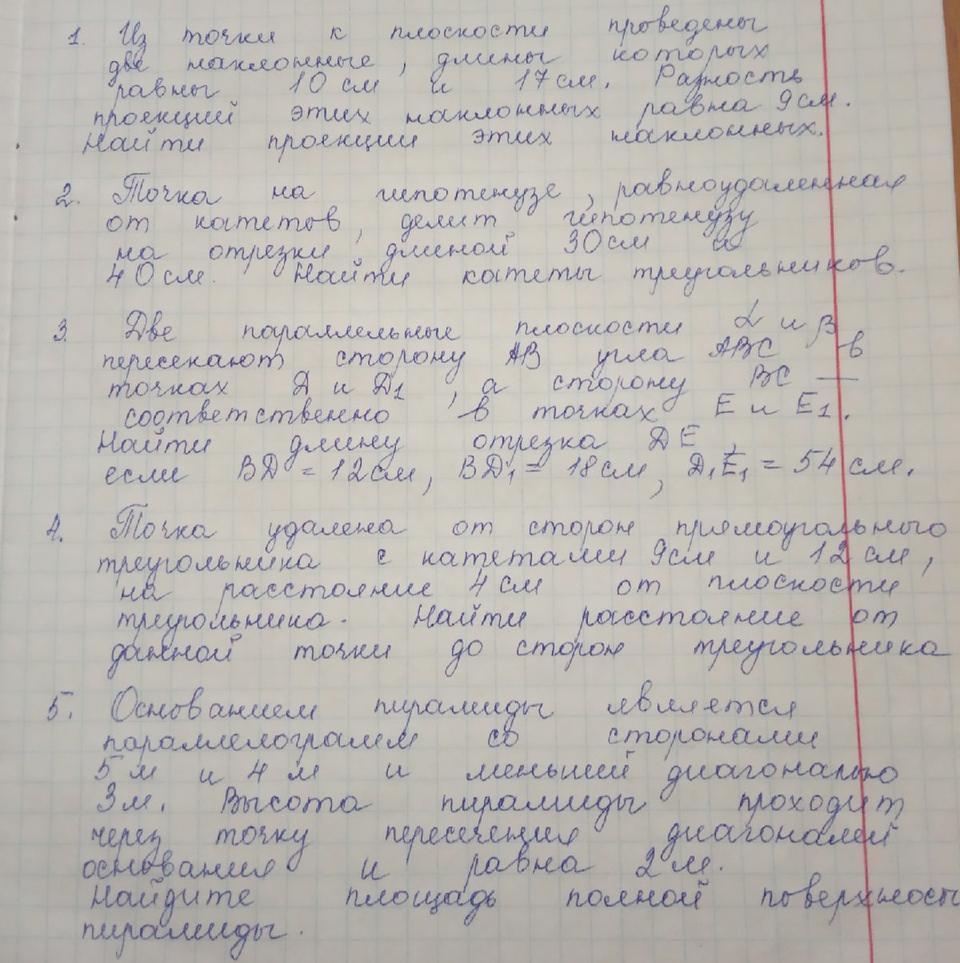 1. Из точки к плоскости проведены
две наклонные, длины которых
равны 10 см и 17 см. Разность
проекций этих наклонных равна 9 см.
Найти проекции этих наклонных.
2. Точка на гипотенузе, равноудаленная
от катетов, делит гипотенузу
на отрезки длиной 30 см и
40 см. Найти катеты треугольников.
3. Две параллельные плоскости α и β
пересекают сторону АВ угла АВС в
точках D и D₁, а сторону ВС —
соответственно в точках Е и Е₁.
Найти длину отрезка DE,
если BD = 12 см, BD₁ = 18 см, D₁E₁ = 54 см.
4. Точка удалена от сторон прямоугольного
треугольника с катетами 9 см и 12 см,
на расстояние 4 см от плоскости
треугольника. Найти расстояние от
данной точки до сторон треугольника
5. Основанием пирамиды является
параллелограмм со сторонами
5 м и 4 м и меньшей диагональю
3 м. Высота пирамиды проходит
через точку пересечения диагоналей
основания и равна 2 м.
Найдите площадь полной поверхности
пирамиды.